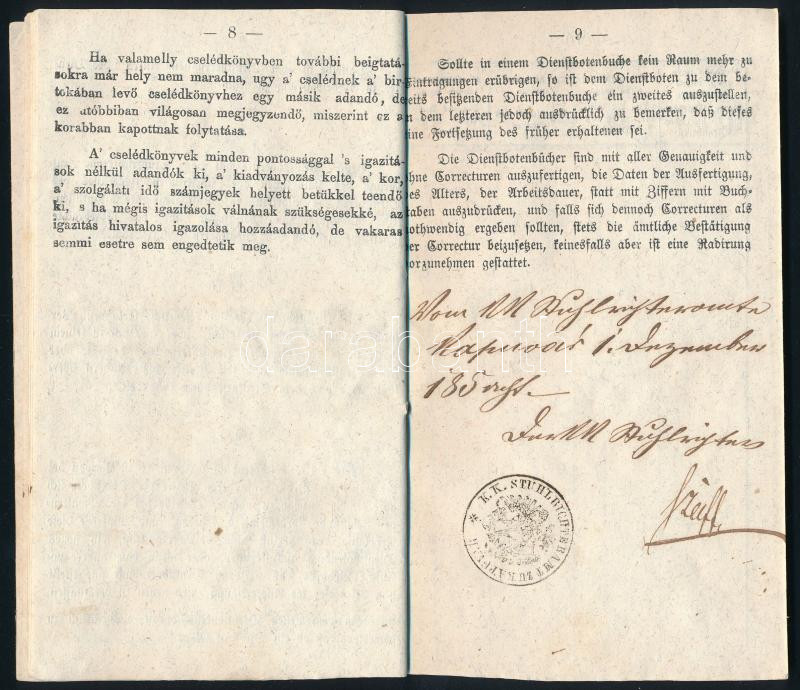 — 8 —
Ha valamelly cselédkönyvben további beigtatá-
sokra már hely nem maradna, ugy a' cselédnek a' bir-
tokában levő cselédkönyvhez egy másik adandó, de
ez utóbbiban világosan megjegyzendő, miszerint ez a
korabban kapottnak folytatása.
A' cselédkönyvek minden pontossággal 's igazitá-
sok nélkül adandók ki, a' kiadványozás kelte, a' kor,
a' szolgálati idő számjegyek helyett betükkel teendő
ki, s ha mégis igazitások válnának szükségesekké, az
igazitás hivatalos igazolása hozzáadandó, de vakaras
semmi esetre sem engedtetik meg.
— 9 —
Sollte in einem Dienstbotenbuche kein Raum mehr zu
Eintragungen erübrigen, so ist dem Dienstboten zu dem be-
reits besitzenden Dienstbotenbuche ein zweites auszustellen,
in dem letzteren jedoch ausdrücklich zu bemerken, daß dieses
eine Fortsetzung des früher erhaltenen sei.
Die Dienstbotenbücher sind mit aller Genauigkeit und
ohne Correcturen auszufertigen, die Daten der Ausfertigung,
des Alters, der Arbeitsdauer, statt mit Ziffern mit Buch-
staben auszudrücken, und falls sich dennoch Correcturen als
nothwendig ergeben sollten, stets die ämtliche Bestätigung
der Correctur beizusetzen, keinesfalls aber ist eine Radirung
vorzunehmen gestattet.
Vom KK Stuhlrichteramte
Kapuvár 1. Dezember
185 acht.
Der KK Stuhlrichter
K.K. STUHLRICHTERAMT ZU KAPPUVAR
darabanth